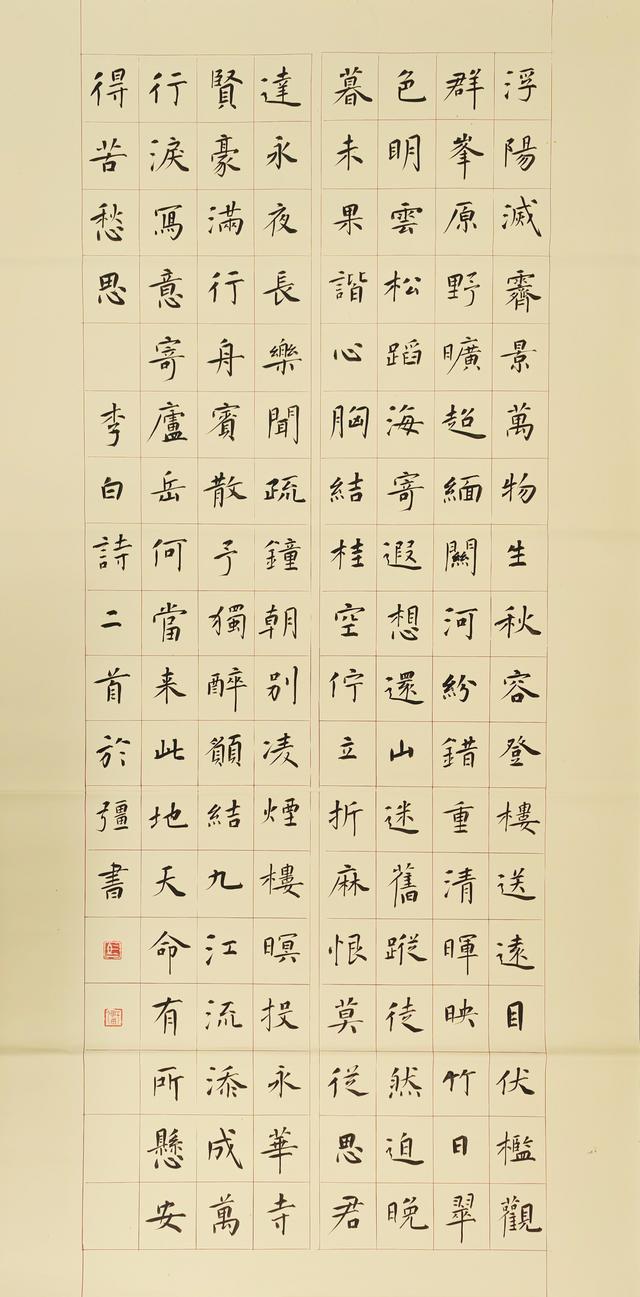 浮陽滅霽景萬物生秋容登樓送遠目伏檻觀
群峯原野曠超緬關河紛錯重清暉映竹日翠
色明雲松蹈海寄遐想還山迷舊蹤徒然迫晚
暮未果諧心胸結桂空佇立折麻恨莫從思君
達永夜長樂聞疏鐘朝別凌煙樓暝投永華寺
賢豪滿行舟賓散予獨醉願結九江流添成萬
行淚寫意寄廬岳何當来此地天命有所懸安
得苦愁思 李白詩二首於彊書